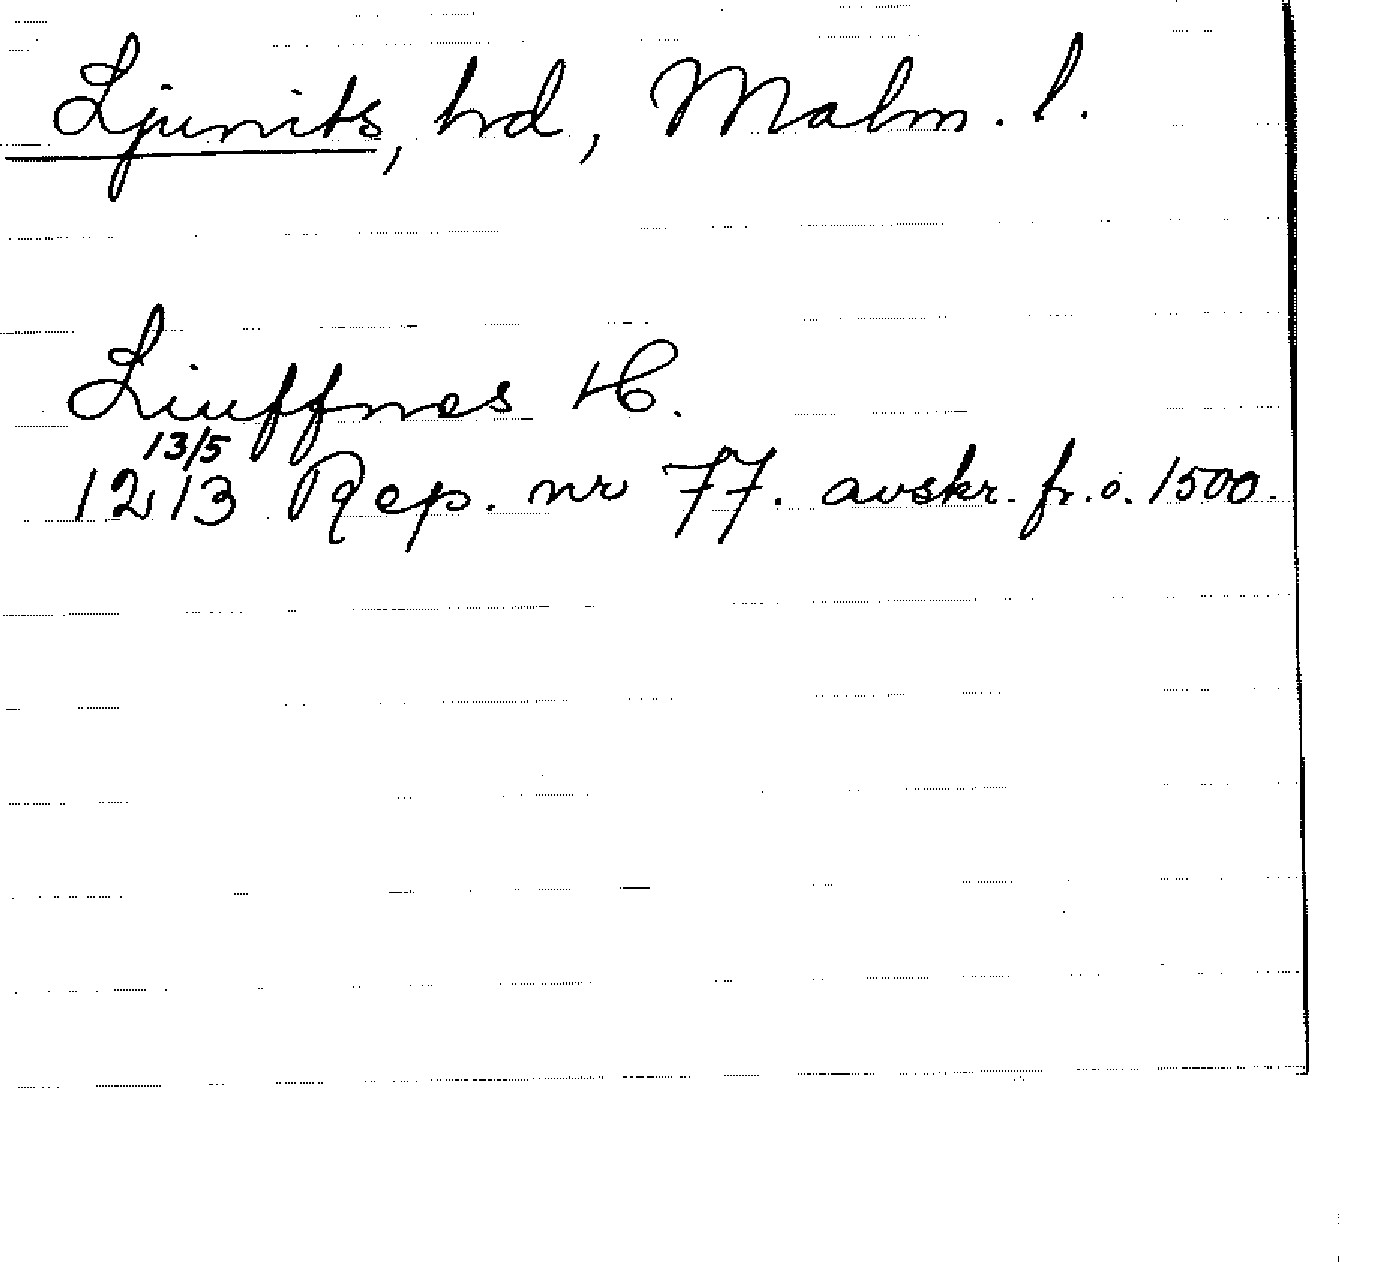 Ljunits, hrd, Malm. l.
Liuffnes H.
13/5
1213 Rep. nr 77. avskr. fr. o. 1500.